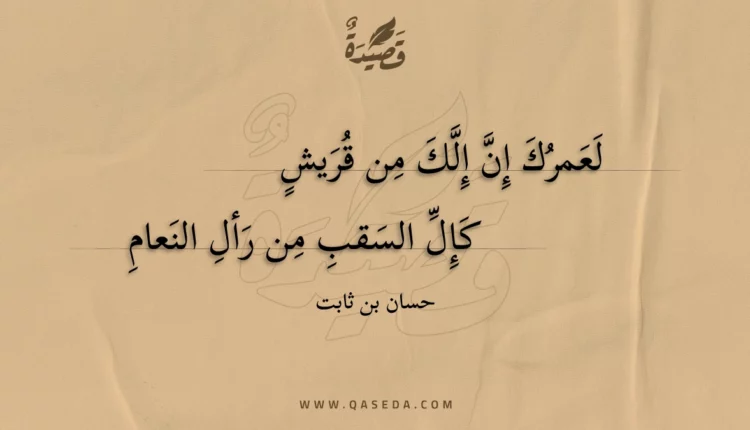 قَصِيدَةٌ
لَعَمرُكَ إِنَّ إِلَّكَ مِن قُرَيشٍ
كَإِلِّ السَقبِ مِن رَألِ النَعامِ
حسان بن ثابت
WWW.QASEDA.COM